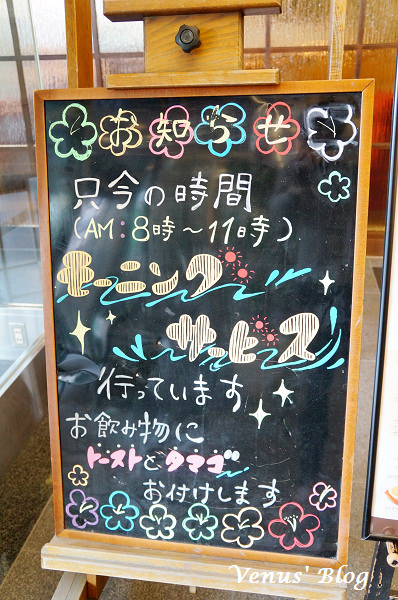 お知らせ
只今の時間
(AM:8時～11時)
モーニング
サービス
行っています
お飲み物に
トーストとタマゴ
お付けします
Venus' Blog